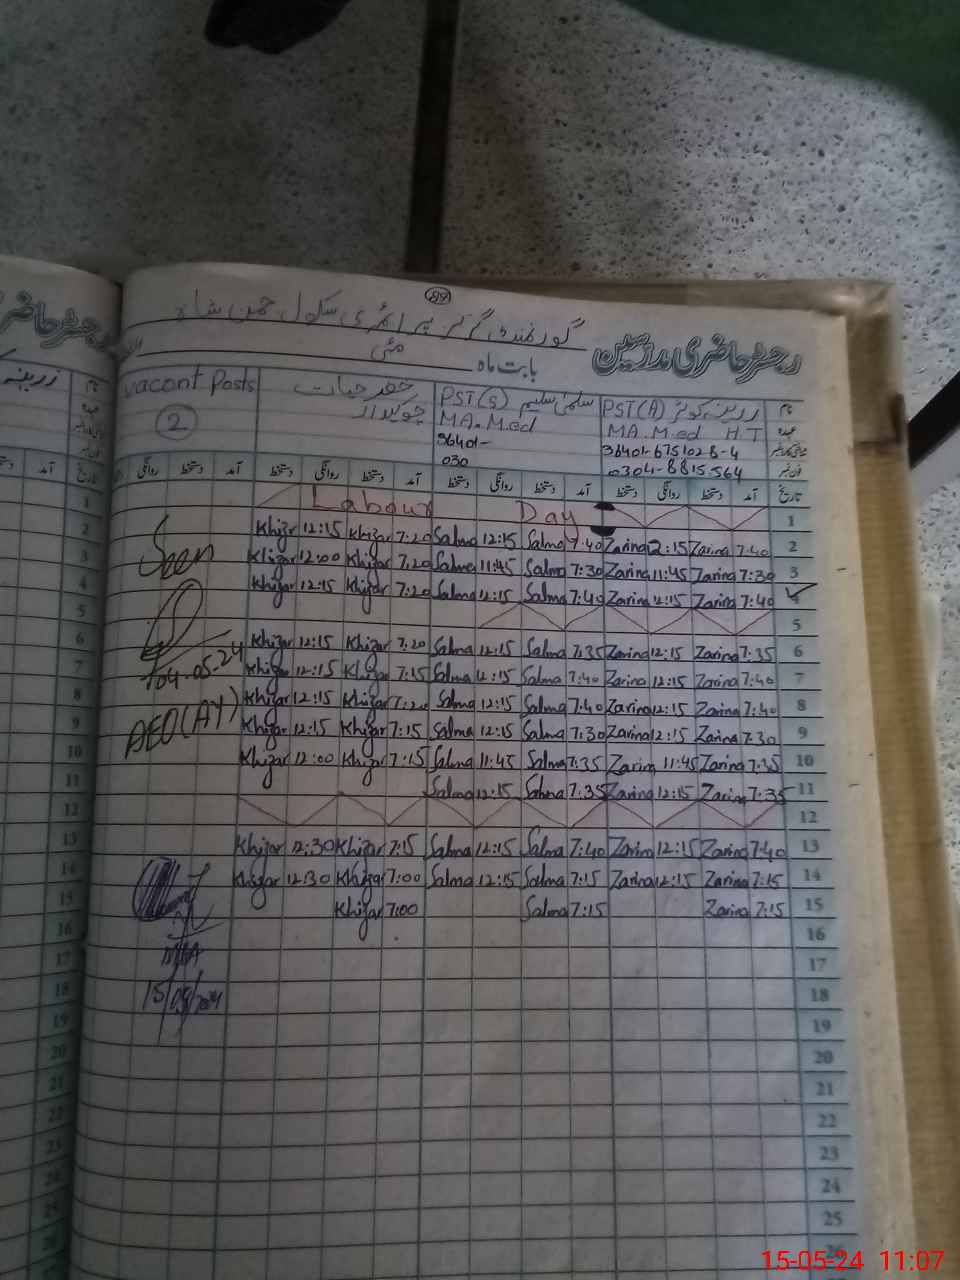 89
گورنمنٹ گرلز پرائمری سکول چمن شاہ
رجسٹر حاضری مدرسین
بابت ماہ مئی
رجسٹر حاضری
نام زرینہ کوثر PST(A) سلمیٰ سلیم PST(S) خضر حیات vacant Posts
عہدہ MA M.ed H.T MA. M.ed چوکیدار 2
36401-6751028-4 36401-
فون نمبر 0304-8815564 030
تاریخ آمد دستخط روانگی دستخط آمد دستخط روانگی دستخط آمد دستخط روانگی دستخط آمد دستخط روانگی
1 Labour Day
2 Khizar 12:15 Khizar 7:20 Salma 12:15 Salma 7:40 Zarina 12:15 Zarina 7:40
3 Khizar 12:00 Khizar 7:20 Salma 11:45 Salma 7:30 Zarina 11:45 Zarina 7:30
4 Khizar 12:15 Khizar 7:20 Salma 12:15 Salma 7:40 Zarina 12:15 Zarina 7:40
5
6 Khizar 12:15 Khizar 7:20 Salma 12:15 Salma 7:35 Zarina 12:15 Zarina 7:35
7 Khizar 12:15 Khizar 7:15 Salma 12:15 Salma 7:40 Zarina 12:15 Zarina 7:40
8 Khizar 12:15 Khizar 7:20 Salma 12:15 Salma 7:40 Zarina 12:15 Zarina 7:40
9 Khizar 12:15 Khizar 7:15 Salma 12:15 Salma 7:30 Zarina 12:15 Zarina 7:30
10 Khizar 12:00 Khizar 7:15 Salma 11:45 Salma 7:35 Zarina 11:45 Zarina 7:35
11 Salma 12:15 Salma 7:35 Zarina 12:15 Zarina 7:35
12
13 Khizar 12:30 Khizar 7:15 Salma 12:15 Salma 7:40 Zarina 12:15 Zarina 7:40
14 Khizar 12:30 Khizar 7:00 Salma 12:15 Salma 7:15 Zarina 12:15 Zarina 7:15
15 Khizar 7:00 Salma 7:15 Zarina 7:15
16
17
18
19
20
21
22
23
24
25
26
Seen
04-05-24
AEO(AY)
MEA
15/05/2024
15-05-24 11:07